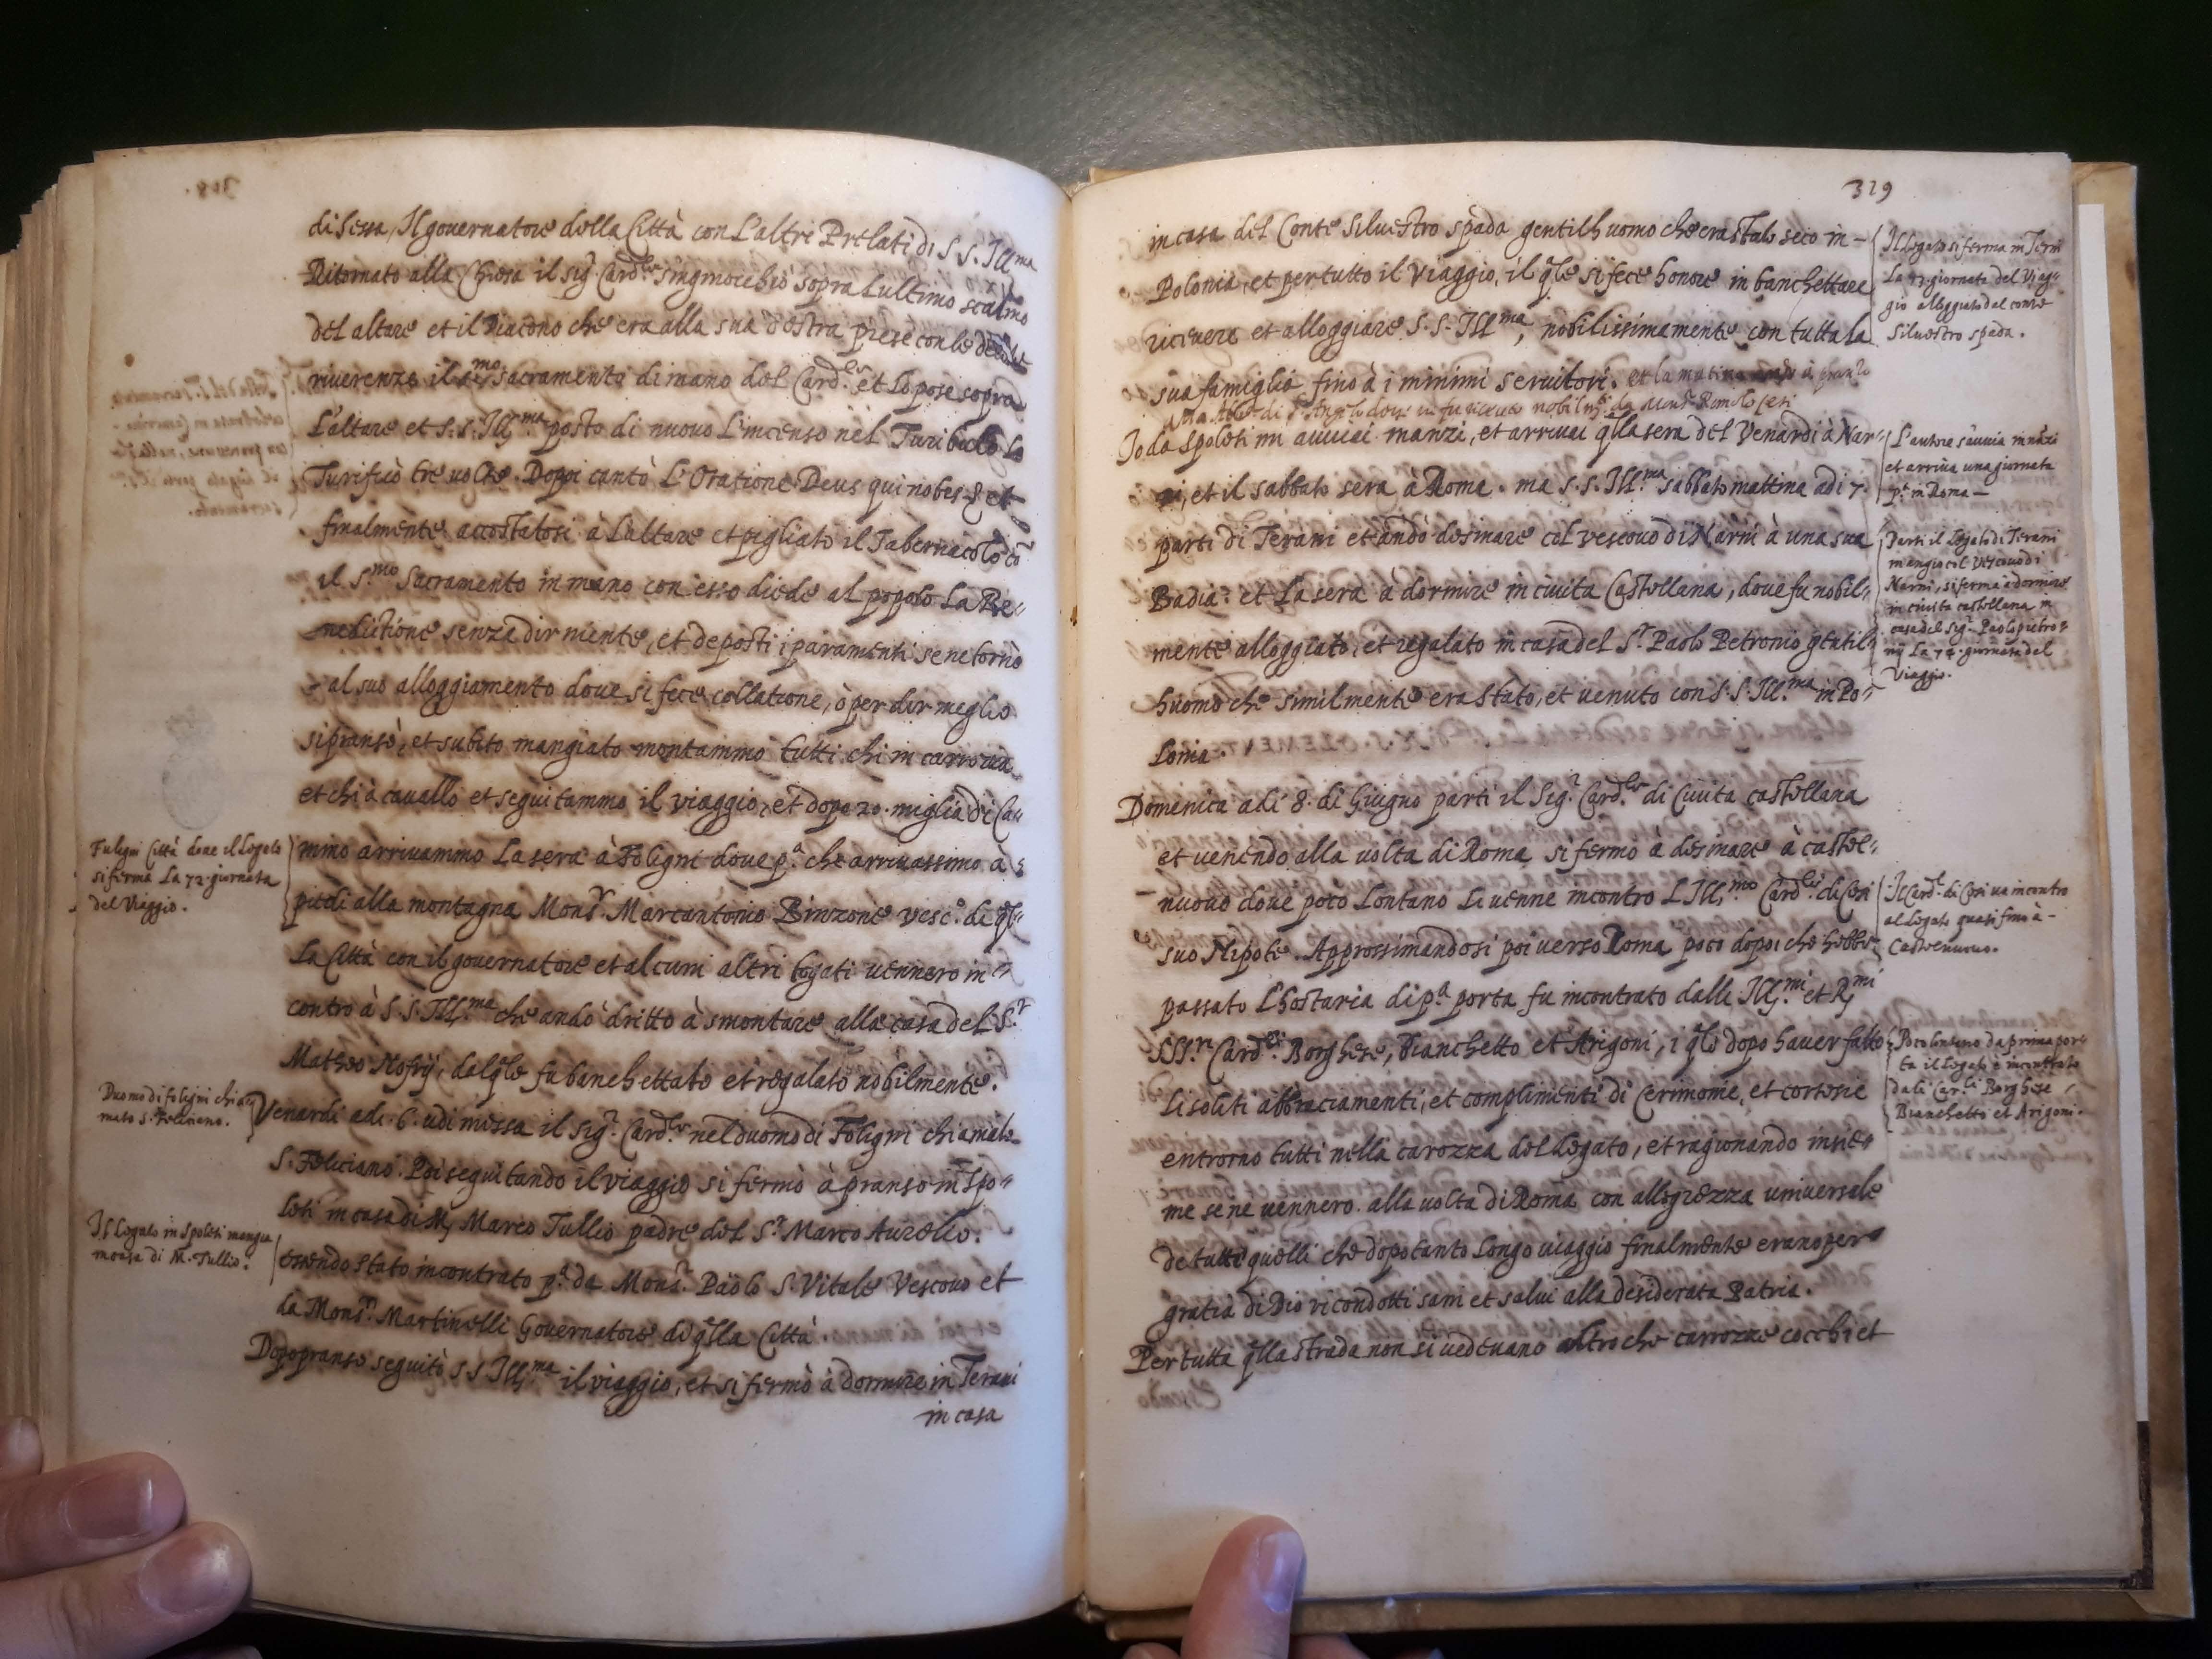 di sessa, Il gouernatore della Città con l'altri Prelati di S. S. Ill.ma
Ritornato alla Chiesa il sig.r Card.le s'inginocchiò sopra l'ultimo scalino
del altare et il Diacono che era alla sua destra prese con le debite
riuerenze il S.mo Sacramento di mano del Card.le et lo pose sopra
L'altare et S. S. Ill.ma posto di nuouo L'incenso nel Turibulo lo
Turificò tre uolte. Doppi cantò L'Oratione Deus qui nobis & et
finalmente accostatosi à l'altare et pigliato il Tabernacolo cō
il S.mo Sacramento in mano con esso diede al popolo La Be„
nedictione senza dir niente, et deposti i paramenti se ne tornò
al suo alloggiamento doue si fece collatione, ò per dir meglio
si pransò, et subito mangiato montammo tutti chi in carrozza
et chi à cauallo et seguitammo il viaggio, et dopo 20. miglia di Ca„
Fuligni Città doue il Legato
si ferma La 72. giornata
del Viaggio.
mino arriuammo La sera à Foligni doue p.a che arriuassimo à
piedi alla montagna Mons.r Marcantonio Binzone vesc.o di q̄l„
La Città con il gouernatore et alcuni altri togati uennero in„
contro à S. S. Ill.ma che andò dritto à smontare alla casa del S.r
Matheo Nofrij, dal q̄le fu banchettato et regalato nobilmente.
Duomo di foligni chia„
mato S. Feliciano.
Venardi adi. 6. udi messa il sig.r Card.le nel duomo di Foligni chiamato
S. Feliciano. Poi seguitando il viaggio si fermò à pranso in Spo„
Il Legato in Spoleti mangia
in casa di M. Tullio.
leti in casa di M. Marco Tullio padre del S.r Marco Aurelio.
essendo stato incontrato p.a da Mons.r Paolo S. Vitale Vescouo et
da Mons.r Martinelli Gouernatore di q̄lla Città.
Dopo pranso seguitò S. S. Ill.ma il viaggio, et si fermò à dormire in Terani
in casa
319
in casa del Conte Siluestro spada gentilhuomo che era stato seco in
Polonia, et per tutto il viaggio, il q̄le si fece honore in banchettare
riceuere et alloggiare S. S. Ill.ma, nobilissimamente con tutta la
sua famiglia fino à i minimi seruitori. et la matina à pranzo
Il Legato si ferma in Terni
La 73. giornata del Viag„
gio alloggiato dal conte
Siluestro spada.
Io da Spoleti mi auuiai inanzi, et arriuai q̄lla sera del Venardi à Nar„
ni, et il sabbato sera à Roma. ma S. S. Ill.ma sabbato mattina adi 7.
L'autore s'auuia inanzi
et arriua una giornata
p.a in Roma
parti di Terani et andò desinare col vescouo di Narni à una sua
Badia. et La sera à dormire in ciuita Castellana, doue fu nobil„
mente alloggiato, et regalato in casa del S.r Paolo Petronio gentil„
huomo che similmente era stato, et uenuto con S. S. Ill.ma in Po„
lonia.
Parti il Legato di Terani
mangio col Vescouo di
Narni, si ferma a dormire
in ciuita castellana in
casa del Sig.r Paolo petro„
nij La 74. giornata del
Viaggio.
Domenica adi 8. di Giugno parti il Sig.r Card.le di Ciuita Castellana
et uenendo alla uolta di Roma si fermo à desinare à castel„
nuouo doue poco Lontano Li uenne incontro L'Ill.mo Card.le di Cesi
suo Nipote. Approssimandosi poi uerso Roma poco dopoi che hebbe
Il Card.l di Cesi ua incontro
al Legato quasi fino à
Castelnuouo.
passato L'hostaria di p.a porta fu incontrato dalli Ill.mi et R.mi
SSS.ri Card.li Borghese, Bianchetto et Arigoni, i q̄li dopo hauer fatto
li soliti abbraciamenti, et complimenti di Cerimonie, et cortesie
Poco lontano da prima por„
ta il Legato è incontrato
dali Car.li Borghese
Bianchetto et Arigoni.
entrorno tutti nella carozza del Legato, et ragionando insie„
me se ne uennero alla uolta di Roma con allegrezza uniuersale
de tutti quelli che dopo tanto Longo uiaggio finalmente erano per
gratia di Dio ricondotti sani et salui alla desiderata Patria.
Per tutta q̄lla strada non si uedeuano altro che carrozze cocchi et